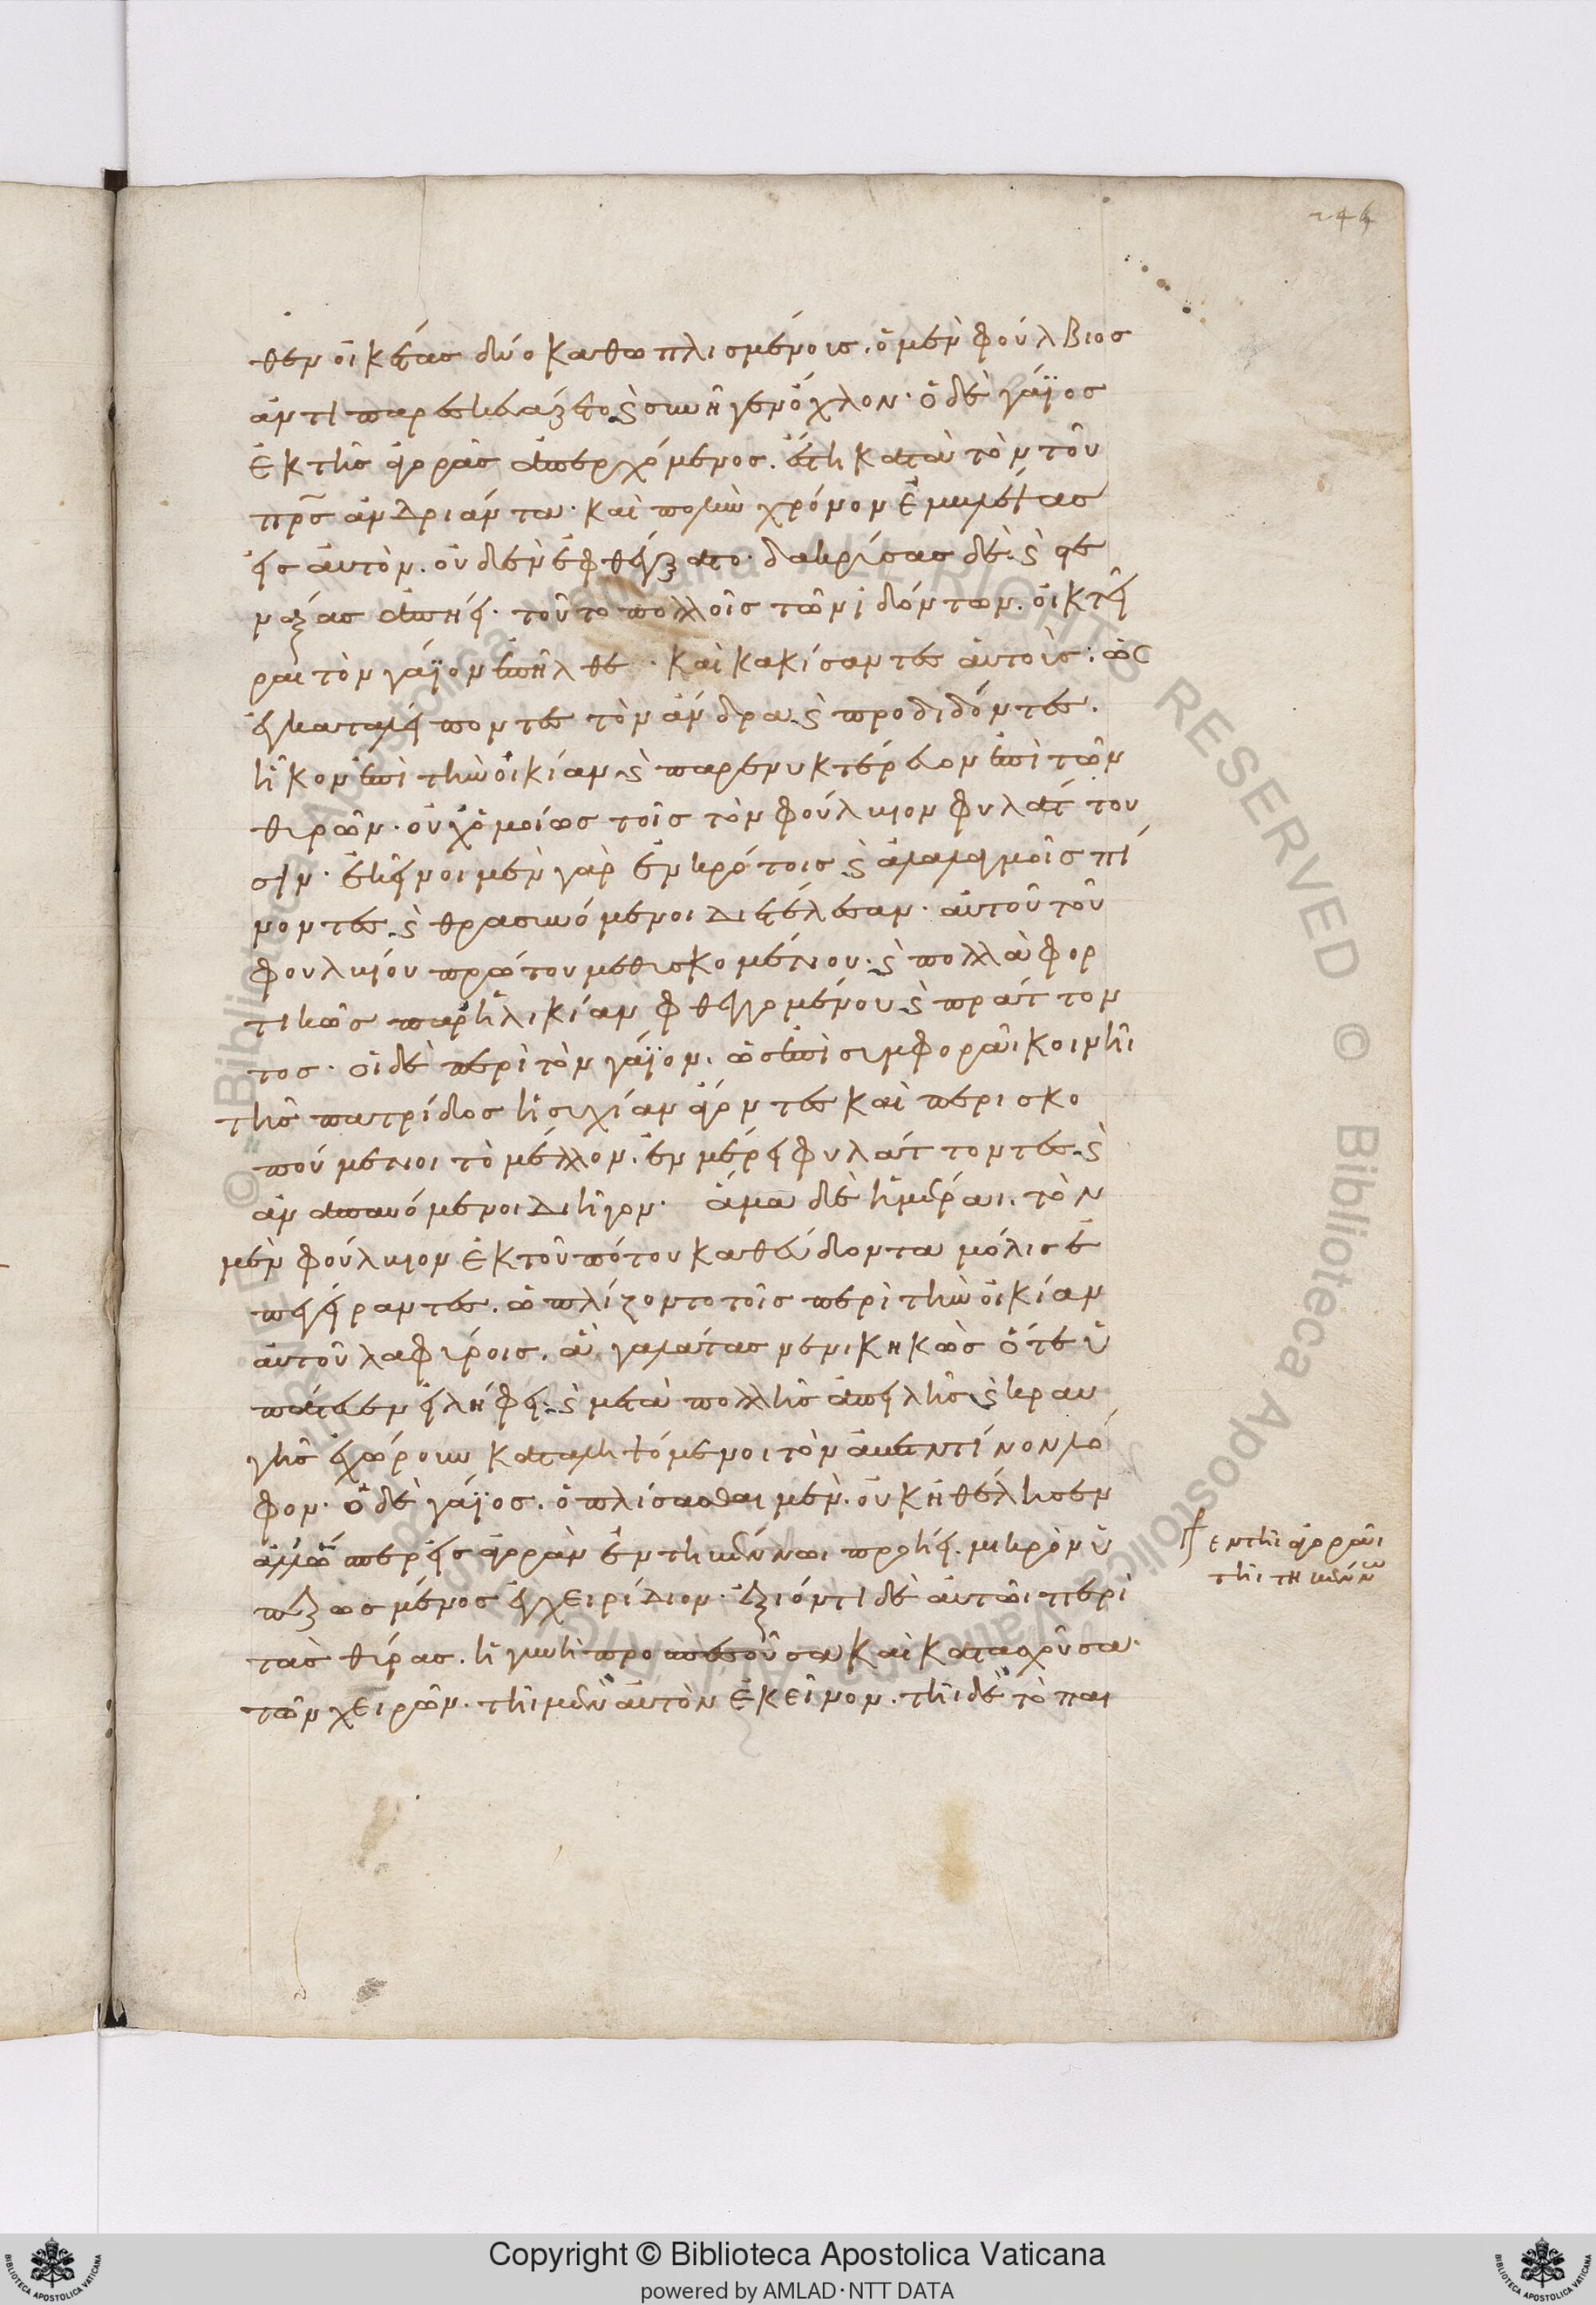 246
θεν οἰκέτας δύο καθωπλισμένους. ὁ μὲν φούλβιος
ἀντιπαρεσκευάζετο ϗ συνῆγεν ὄχλον· ὁ δὲ γάϊος
ἐκ τῆς ἀγορᾶς ἀπερχόμενος. ἔστη κατὰ τὸν τοῦ
πρς ἀνδριάντα· καὶ πολὺν χρόνον ἐμβλέψας
εἰς αὐτὸν. οὐδὲν ἐφθέγξατο· δακρύσας δὲ ϗ στε
νάξας ἀπήει· τοῦτο πολλοῖς τῶν ἰδόντων. οἰκτεῖ
ραι τὸν γάϊον ἐπῆλθε· καὶ κακίσαντες αὐτοὺς· ὡς
ἐγκαταλείποντες τὸν ἄνδρα ϗ προδιδόντες.
ἧκον ἐπὶ τὴν οἰκίαν ϗ παρενυκτέρευον ἐπὶ τῶν
θυρῶν· οὐχ ὁμοίως τοῖς τὸν φούλκιον φυλάττου
σιν· ἐκεῖνοι μὲν γὰρ ἐν κρότοις ϗ ἀλαλαγμοῖς πί
νοντες ϗ θρασυνόμενοι διετέλεσαν· αὐτοῦ τοῦ
φουλκίου πρώτου μεθυσκομένου· ϗ πολλὰ φορ
τικῶς παρ' ἡλικίαν φθεγγομένου ϗ πράττον
τος· οἱ δὲ περὶ τὸν γάϊον. ὡς ἐπὶ συμφορᾶι κοινῆι
τῆς πατρίδος ἡσυχίαν ἄγοντες καὶ περισκο
πούμενοι τὸ μέλλον. ἐν μέρει φυλάττοντες ϗ
ἀναπαυόμενοι διῆγον· ἅμα δὲ ἡμέραι. τὸν
μὲν φούλκιον ἐκ τοῦ πότου καθεύδοντα μόλις ἐ
πεγείραντες. ὡπλίζοντο τοῖς περὶ τὴν οἰκίαν
αὐτοῦ λαφύροις. ἃ γαλάτας νενικηκὼς ὅτε ὑ
πάτευεν εἰλήφει· ϗ μετὰ πολλῆς ἀπειλῆς ϗ κραυ
γῆς ἐχώρουν καταληψόμενοι τὸν ἀβεντίνον λό
φον· ὁ δὲ γάϊος. ὁπλίσασθαι μὲν. οὐκ ἠθέλησεν
ἀλλ' ὥσπερ εἰς ἀγορὰν ἐν τηβέννωι προήει. μικρὸν ὑ
πεζωσμένος ἐγχειρίδιον· ἐξιόντι δὲ αὐτῶι περὶ
τὰς θύρας. ἡ γυνὴ προσπεσοῦσα καὶ κατασχοῦσα·
τῶν χειρῶν· τῆι μὲν αὐτὸν ἐκεῖνον. τῆι δὲ τὸ παι
εν τῆι ἀγορᾶι
Copyright © Biblioteca Apostolica Vaticana
powered by AMLAD·NTT DATA